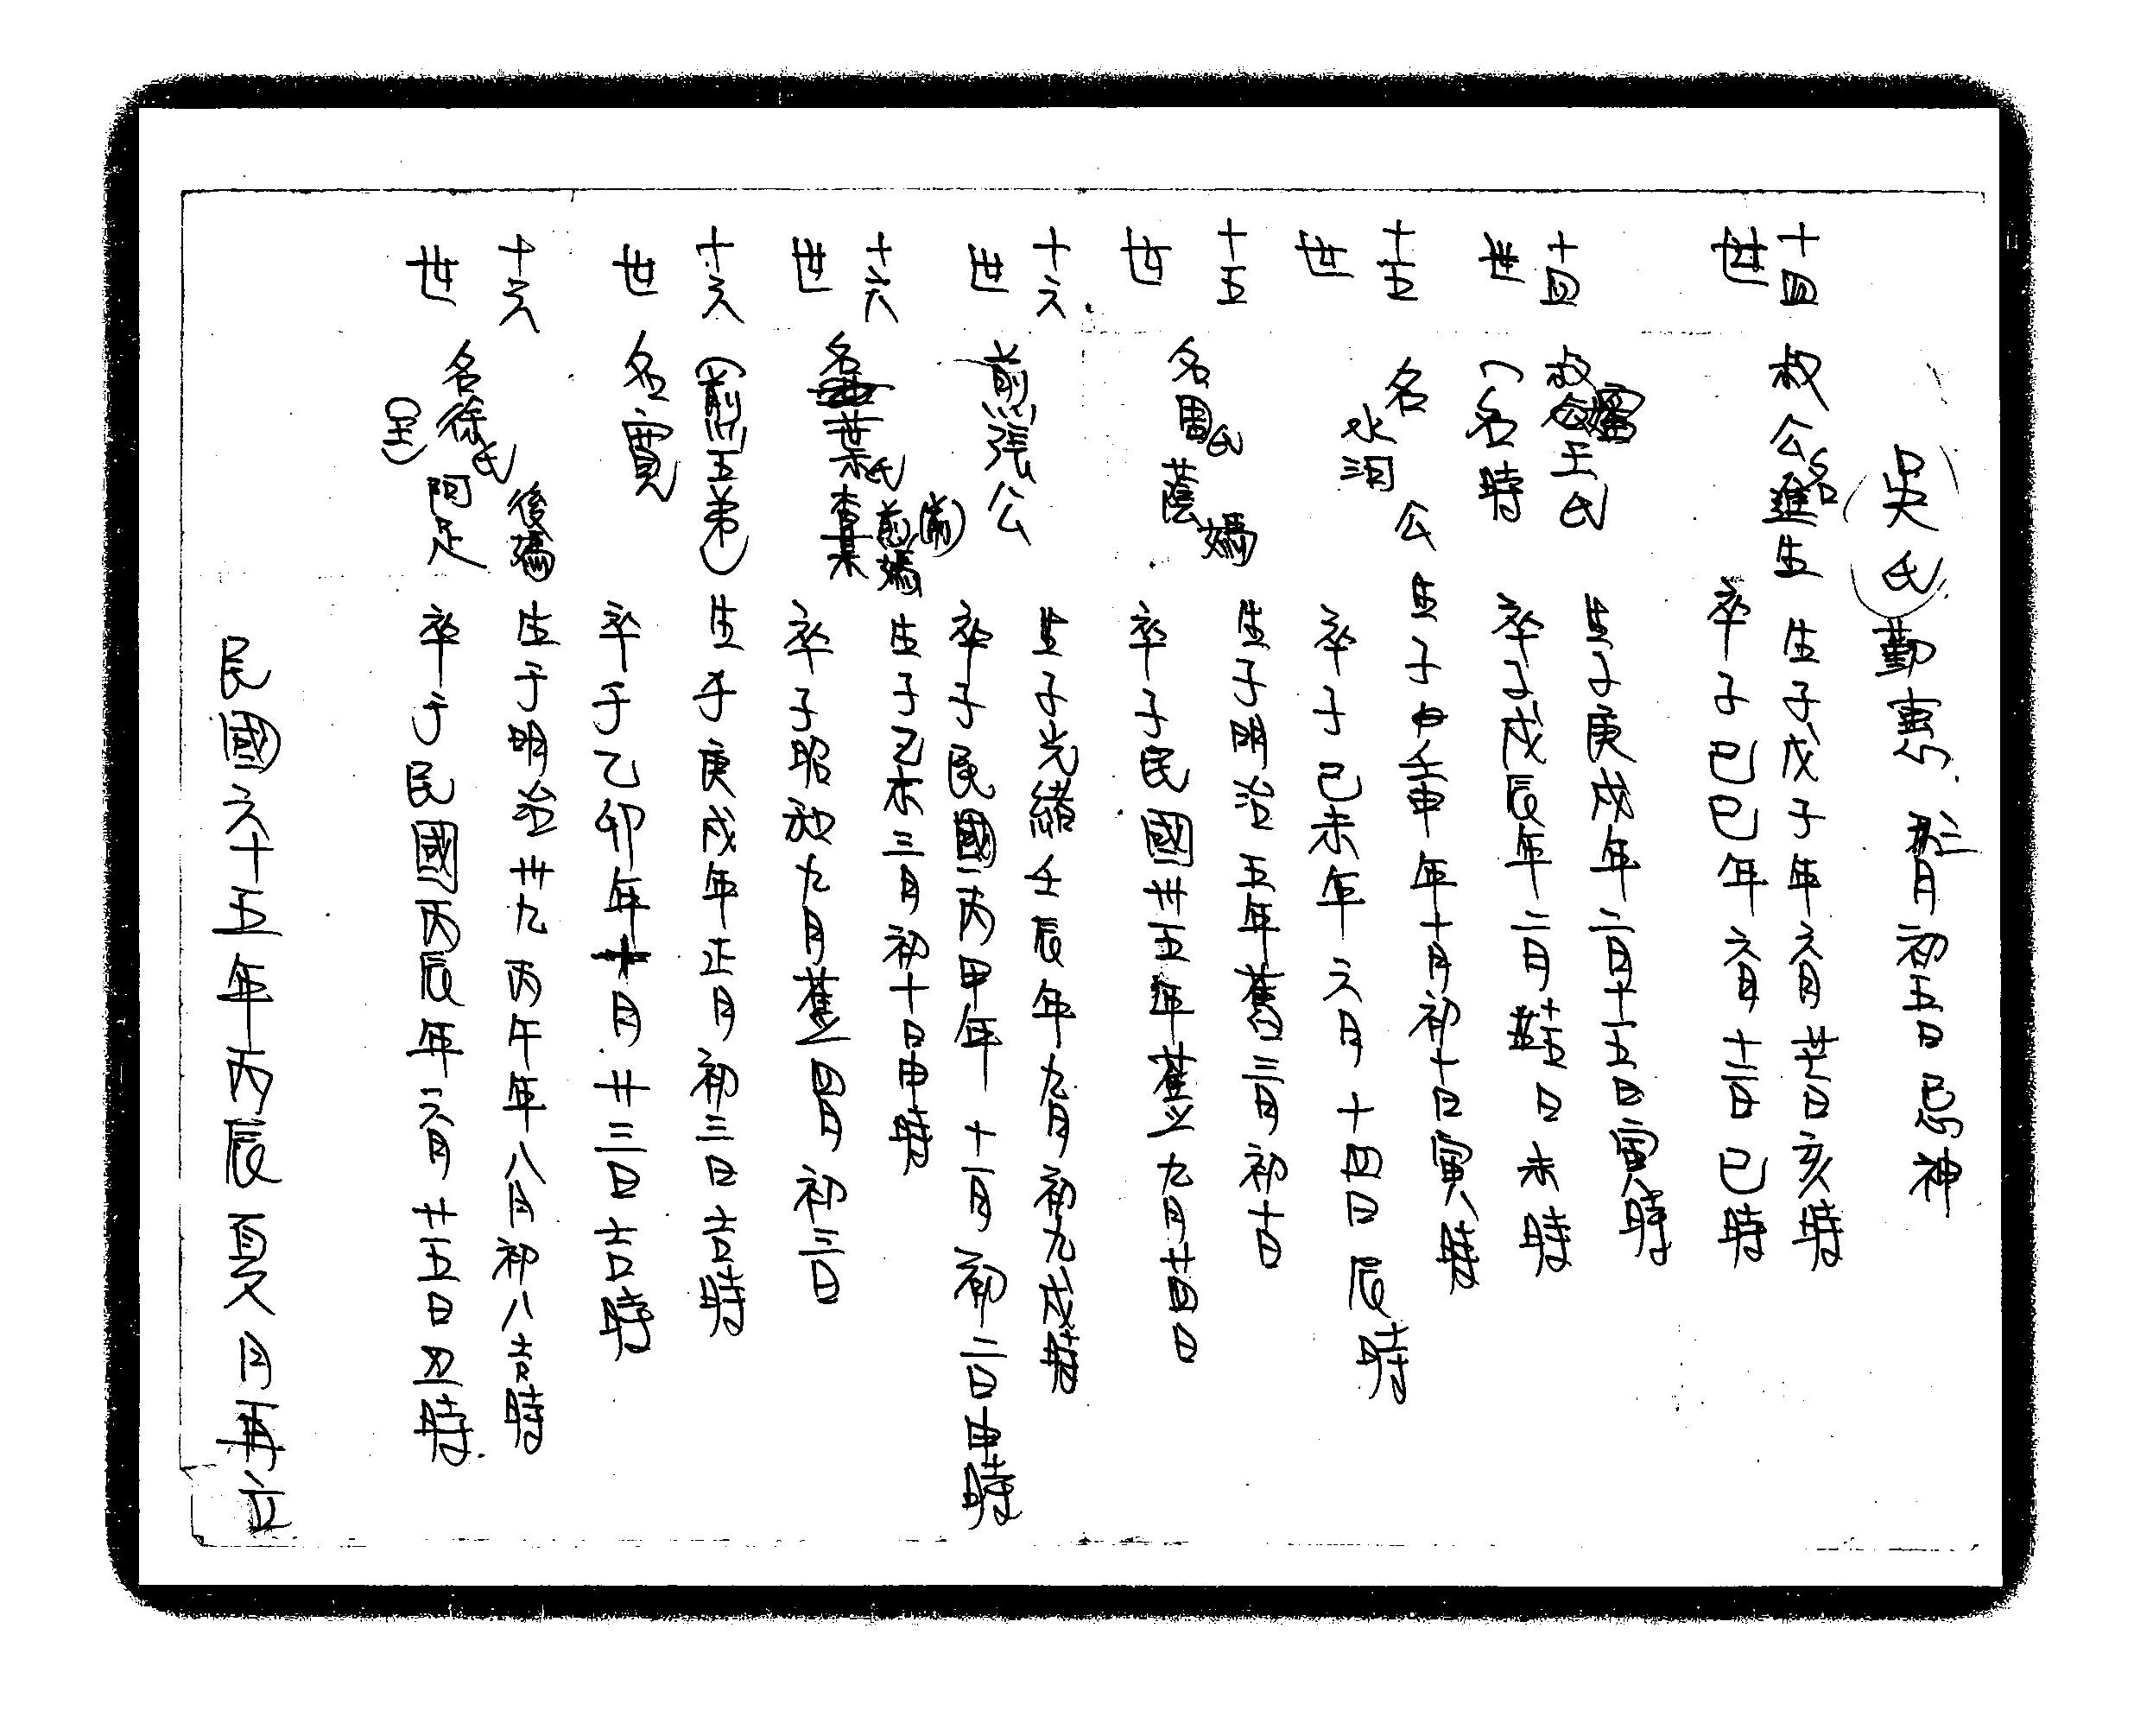 吳氏勤 十二月初五日忌神
十四世 叔公名進生 生于戊子年六月廿七日亥時
卒于己巳年六月十三日巳時
十四世 叔公媽王氏 生于庚戌年二月十五日寅時
(名時 卒于戊辰年二月十五日未時
十五世 名水 公 生于壬申年十月初十日寅時
卒于己未年六月十四日辰時
十五世 名周氏蔭媽 生于明治五年舊三月初十日
卒于民國廿五年舊九月廿四日
十六世 公 生于光緒壬辰年九月初九戌時
卒于民國丙申年十一月初二日申時
十六世 名葉氏 前媽 生于乙未三月初十日申時
卒于昭和九月舊四月初三日
十六世 生于庚戌年正月初三日吉時
名寶 卒于乙卯年十月廿三日吉時
十六世 後媽 生于明治卅九丙午年八月初八吉時
名徐氏阿足 卒于民國丙辰年六月廿五日丑時
民國六十五年丙辰夏月再立